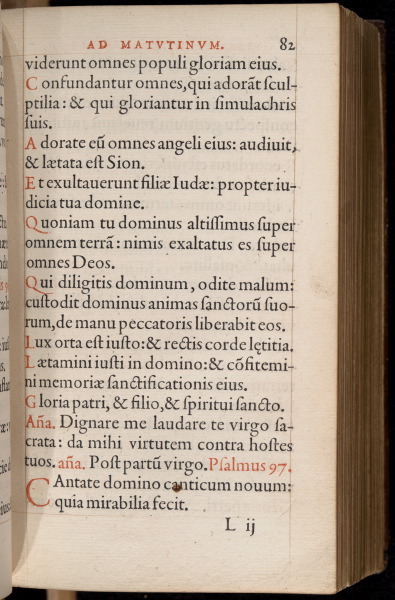 AD MATVTINVM. 82
viderunt omnes populi gloriam eius.
Confundantur omnes, qui adorãt ſcul-
ptilia: & qui gloriantur in ſimulachris
ſuis.
Adorate eũ omnes angeli eius: audiuit,
& lætata eſt Sion.
Et exultauerunt filiæ Iudæ: propter iu-
dicia tua domine.
Quoniam tu dominus altiſſimus ſuper
omnem terrã: nimis exaltatus es ſuper
omnes Deos.
Qui diligitis dominum, odite malum:
cuſtodit dominus animas ſanctorũ ſuo-
rum, de manu peccatoris liberabit eos.
Lux orta eſt iuſto: & rectis corde lętitia.
Lætamini iuſti in domino: & cõfitemi-
ni memoriæ ſanctificationis eius.
Gloria patri, & filio, & ſpiritui ſancto.
Aña. Dignare me laudare te virgo ſa-
crata: da mihi virtutem contra hoſtes
tuos. aña. Poſt partũ virgo. Pſalmus 97.
CAntate domino canticum nouum:
quia mirabilia fecit.
L ij